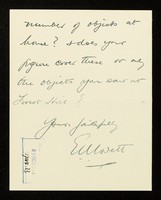 number of objects at
home? & does your
figure cover these or only
the objects you saw at
Tower Hill?
Yours faithfully